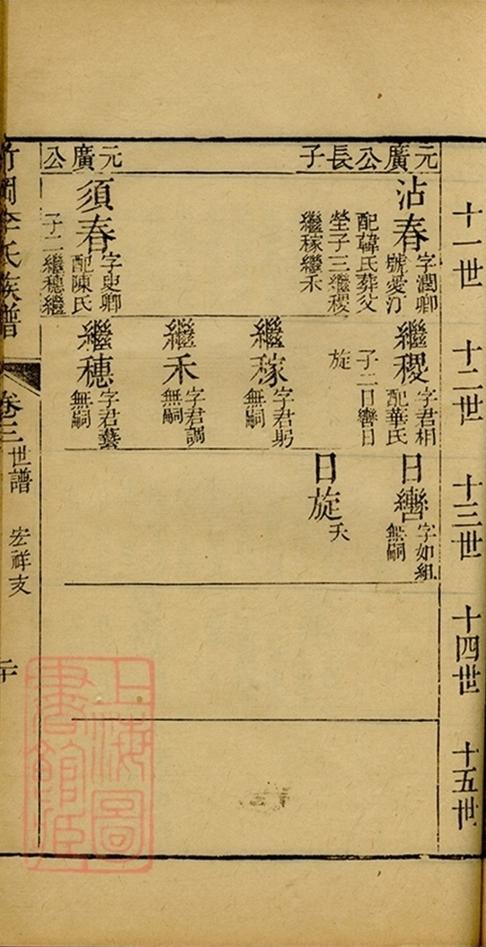 十一世
十二世
十三世
十四世
十五世
元廣公長子
沾春
字潤卿
號愛汀
配韓氏葬父
塋子三繼稷
繼稼繼禾
元廣公
須春
字史卿
配陳氏
子二繼穗繼
繼稷
字君相
配華氏
子二日轡日
旋
繼稼
字君躬
無嗣
繼禾
字君調
無嗣
繼穗
字君藝
無嗣
日轡
字如組
無嗣
日旋
夭
竹岡李氏族譜
卷三
世譜
宏祥支
二十
上海圖
書館藏